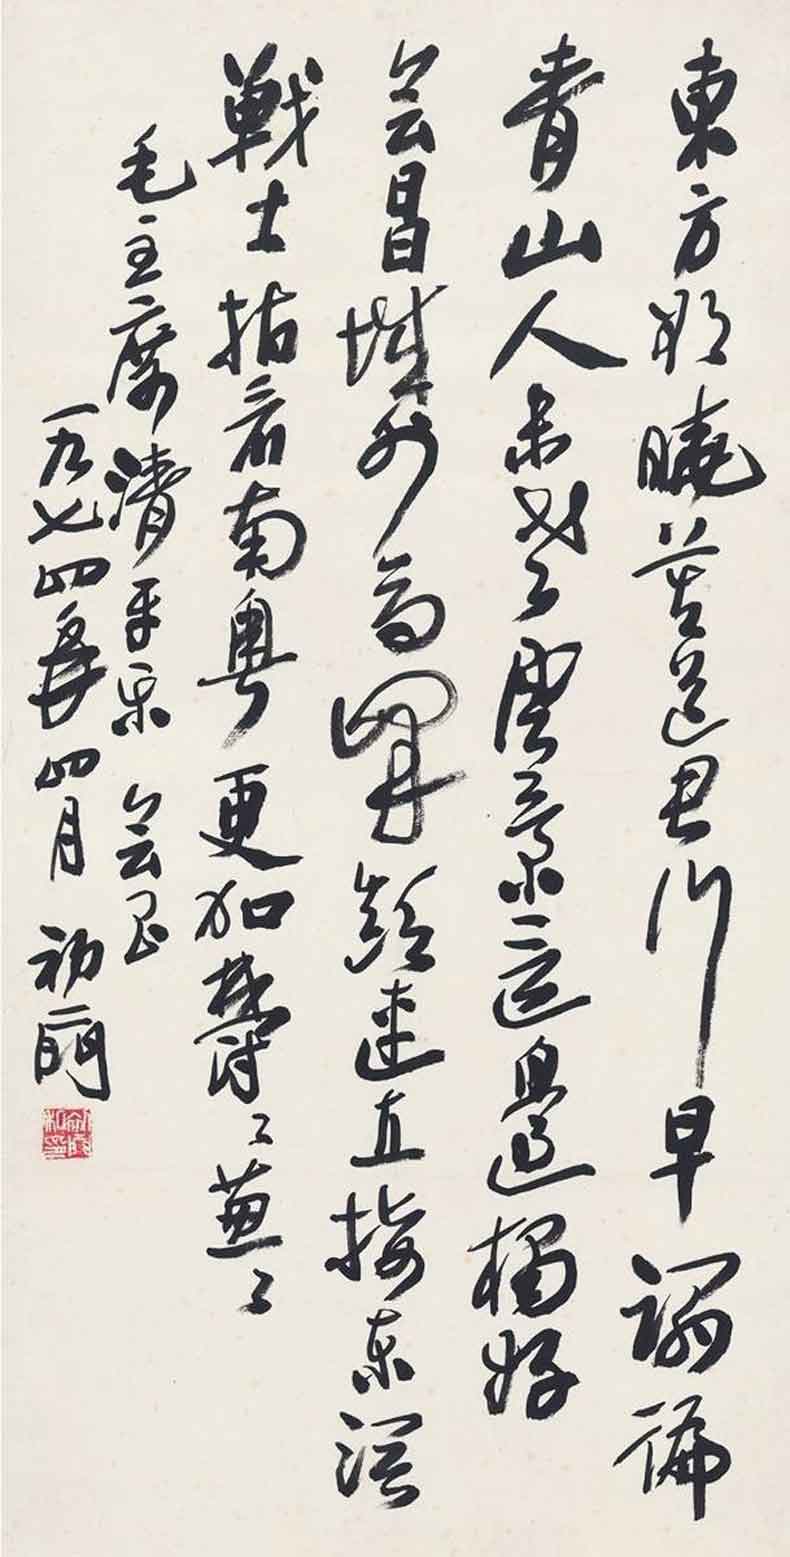 東方欲曉莫道君行早踏遍
青山人未老風景這邊獨好
会昌城外高峰顛連直接东溟
戰士指看南粤更加鬱々葱々
毛主席清平乐 会昌
一九七四年四月